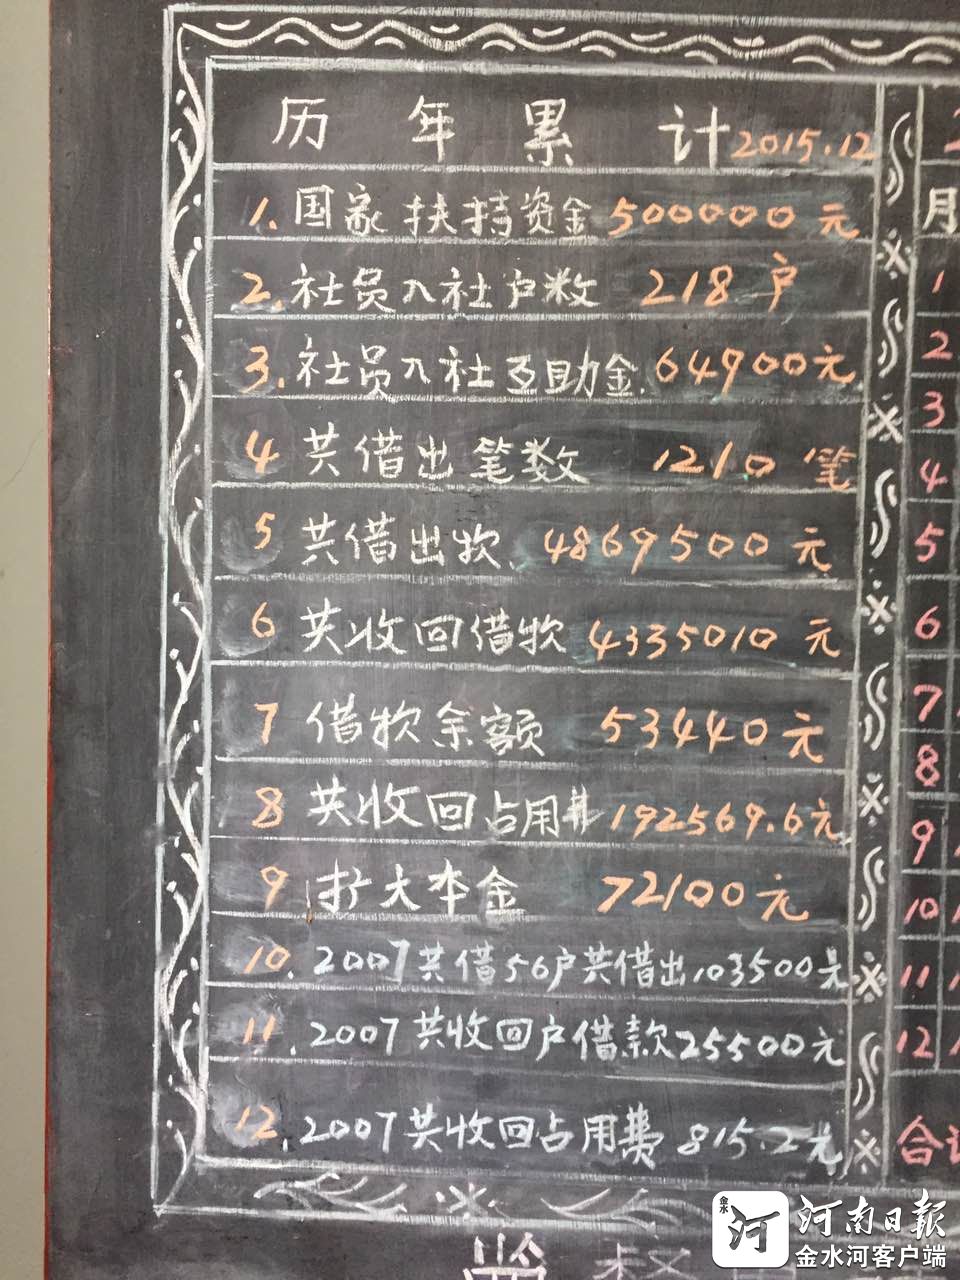 历年累计2015.12
1.国家扶持资金500000元
2.社员入社户数 218户
3.社员入社互助金.64900元
4 共借出笔数 1210笔
5 共借出款.4869500元
6 共收回借款4335010元
7 借款余额 53440元
8 共收回占用费192569.6元
9 扩大本金 72100元
10.2007共借56户共借出103500元
11.2007共收回户借款25500元
12.2007共收回占用费815.2元
月
1
2
3
4
5
6
7
8
9
10
11
12
合计
河南日报
金水河客户端
金水
河